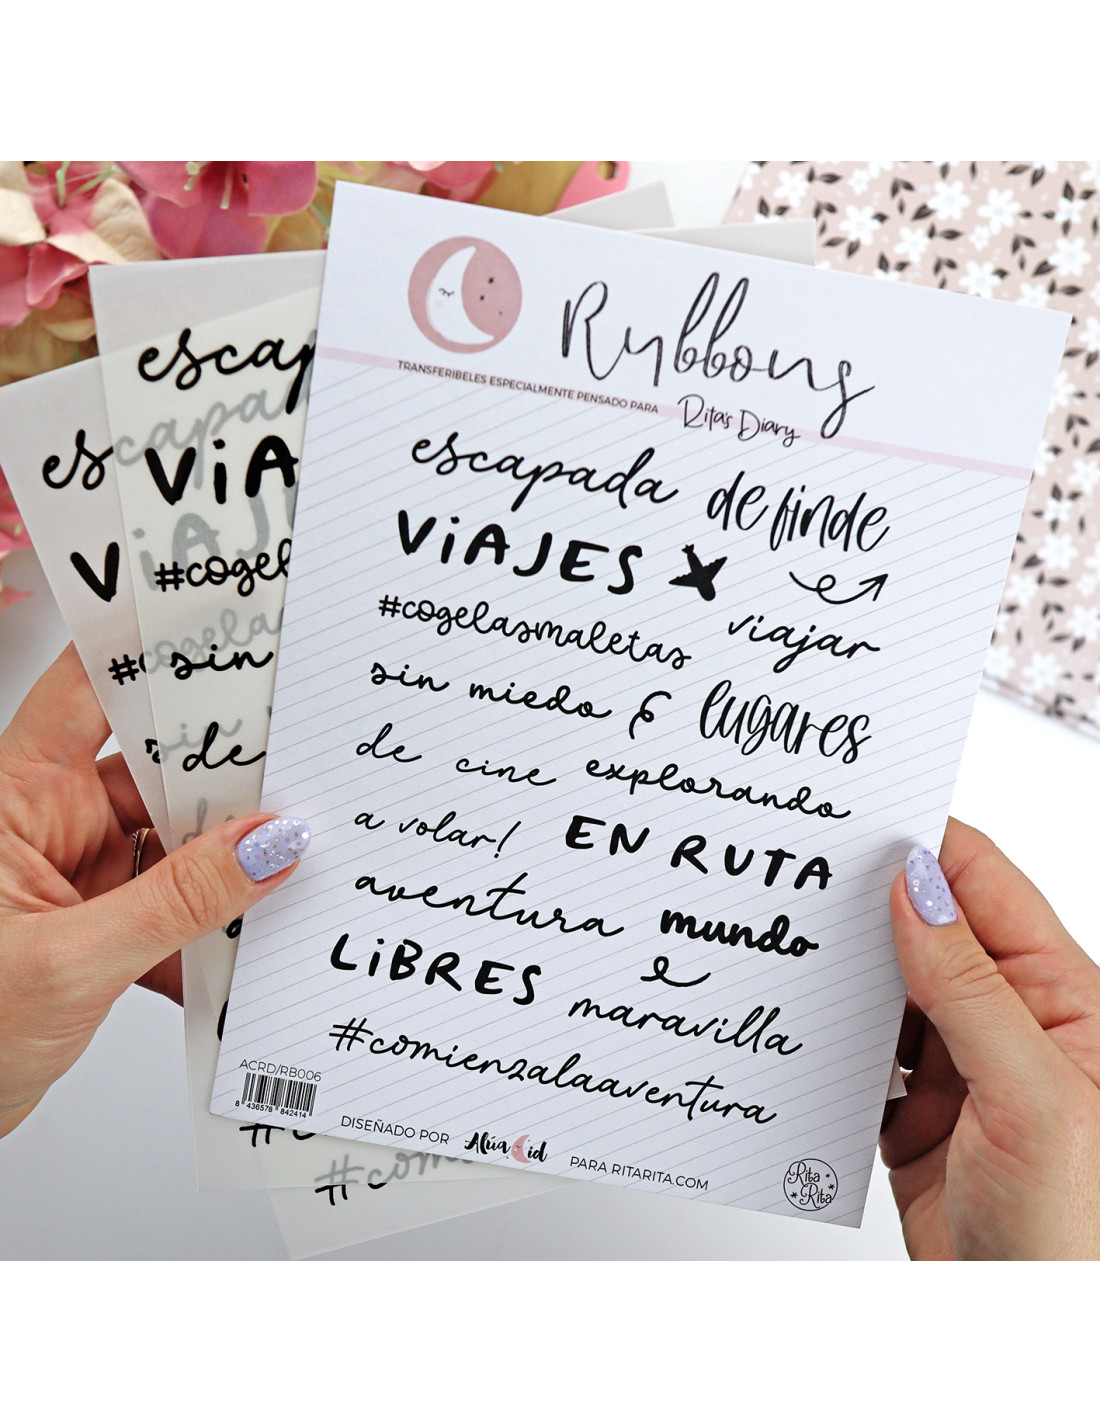 Rybbons
TRANSFERIBELES ESPECIALMENTE PENSADO PARA Rita's Diary
escapada de finde
ViAJES
viajar
#cogelasmaletas
sin miedo & lugares
de cine explorando
a volar! EN RUTA
aventura mundo
LiBRES e
maravilla
#comienzalaaventura
ACRD/RB006
8 436578 842414
DISEÑADO POR Alúa Cid PARA RITARITA.COM
Rita Rita
escap
ViA
#cogel
sin
de
es
V
#c
#com